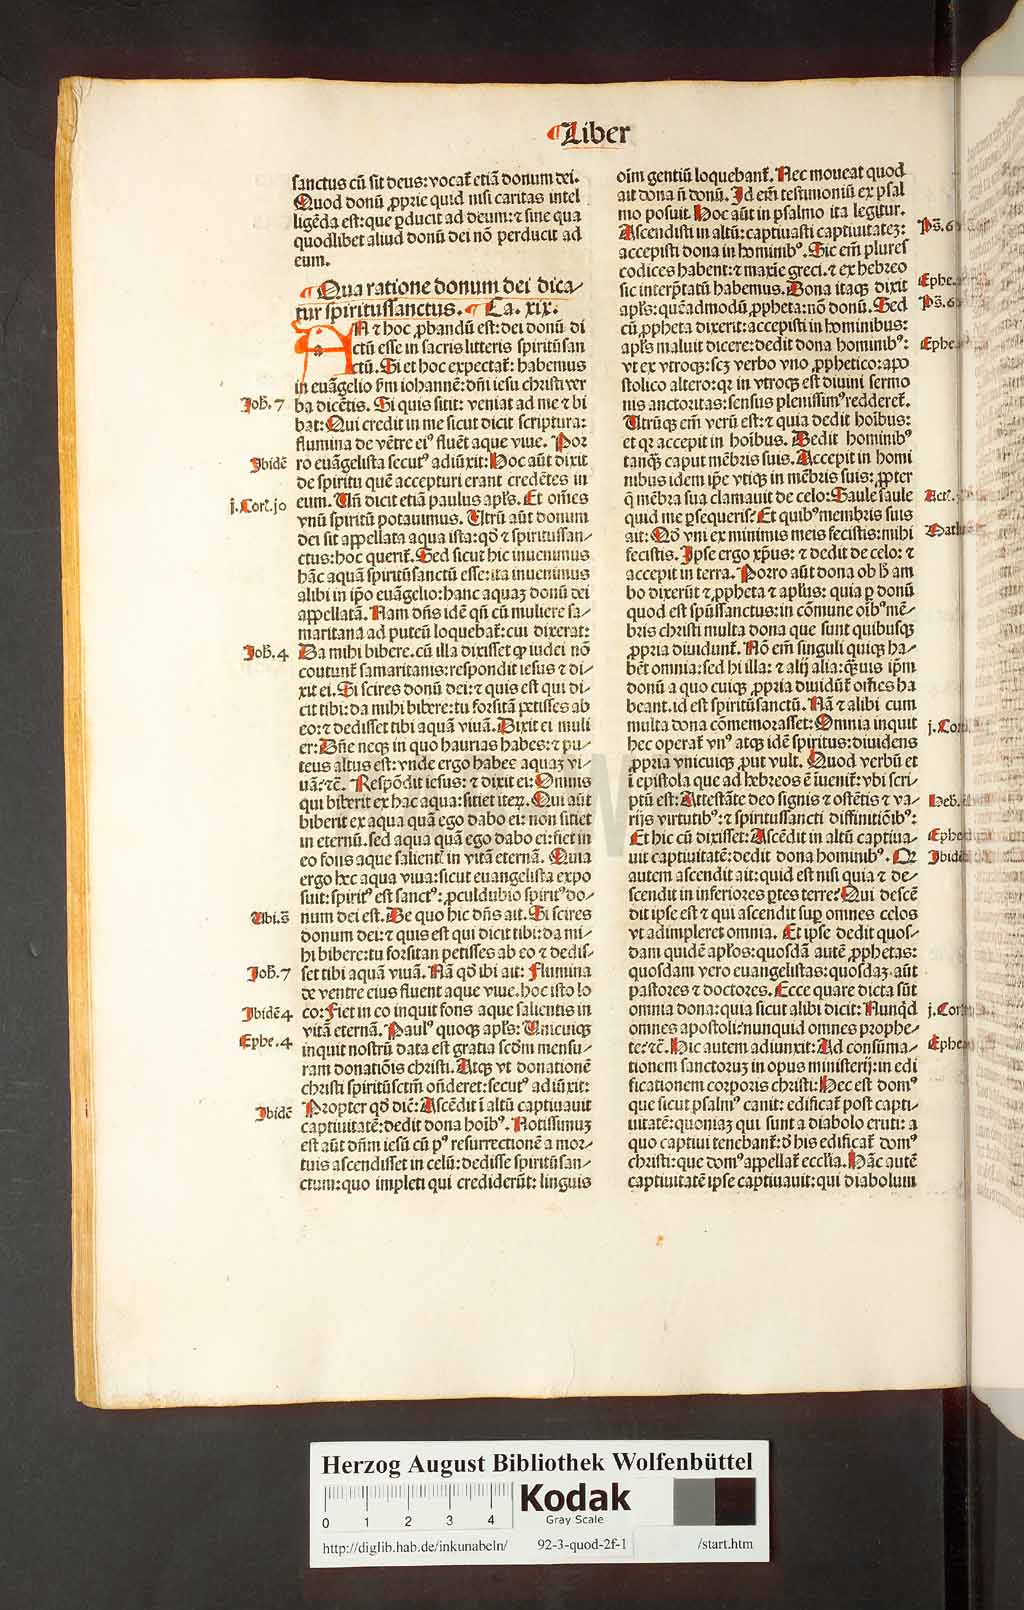 Liber
sanctus cū sit deus: vocat̄ etiā donum dei.
Quod donū ꝓprie quid nisi caritas intel
ligēda est: que ꝑducit ad deum: ⁊ sine qua
quodlibet aliud donū dei nō perducit ad
eum.
¶ Qua ratione donum dei dica⸗
tur spiritussanctus. ¶ Ca. xix.
AN ⁊ hoc ꝓbandū est: dei donū di
ctū esse in sacris litteris spiritūsan
ctū. Si et hoc expectat̄: habemus
in euāgelio ẜm iohannē: dn̄i iesu christi ver
ba dicētis. Si quis sitit: veniat ad me ⁊ bi
Joh̄. 7
bat: Qui credit in me sicut dicit scriptura:
flumina de vētre eiꝰ fluēt aque viue. Por
ro euāgelista secutꝰ adiūxit: Hoc aūt dixit
Ibidē
de spiritu quē accepturi erant credētes in
eum. Un̄ dicit etiā paulus apl̄s. Et om̄es
j. Cor. jo
vnū spiritū potauimus. Utrū aūt donum
dei sit appellata aqua ista: qd̄ ⁊ spiritussan⸗
ctus: hoc querit̄. Sed sicut hic inuenimus
hāc aquā spiritūsanctū esse: ita inuenimus
alibi in ip̄o euāgelio: hanc aquaꝫ donū dei
appellatā. Nam dn̄s idē qn̄ cū muliere sa⸗
maritana ad puteū loquebat̄: cui dixerat:
Da mihi bibere. cū illa dixisset ꝙ iudei nō
Joh̄. 4
coutunt̄ samaritanis: respondit iesus ⁊ di⸗
xit ei. Si scires donū dei: ⁊ quis est qui di⸗
cit tibi: da mihi bibere: tu forsitā petisses ab
eo: ⁊ dedisset tibi aquā viuā. Dixit ei muli
er: Dn̄e neqꝫ in quo haurias habes: ⁊ pu⸗
teus altus est: vnde ergo habes aquaꝫ vi⸗
uā: ⁊c̄. Respōdit iesus: ⁊ dixit ei: Omnis
qui biberit ex hac aqua: sitiet iteꝝ. Qui aūt
biberit ex aqua quā ego dabo ei: non sitiet
in eternū. sed aqua quā ego dabo ei: fiet in
eo fons aque salientꝭ in vitā eternā. Quia
ergo hec aqua viua: sicut euangelista expo
suit: spiritꝰ est sanctꝰ: ꝓculdubio spiritꝰ do⸗
num dei est. De quo hic dn̄s ait. Si scires
Ubi. s̄
donum dei: ⁊ quis est qui dicit tibi: da mi⸗
hi bibere: tu forsitan petisses ab eo ⁊ dedis⸗
set tibi aquā viuā. Nā qd̄ ibi ait: Flumina
Joh̄. 7
de ventre eius fluent aque viue. hoc isto lo
co: Fiet in eo inquit fons aque salientis in
Ibidē 4
vitā eternā. Paulꝰ quoqꝫ apl̄s: Unicuiqꝫ
inquit nostrū data est gratia scd̄m mensu⸗
Ephe. 4
ram donatiōis christi. Atqꝫ vt donationē
christi spiritūsctm̄ on̄deret: secutꝰ adiūxit:
Propter qd̄ dic̄: Ascēdit ī altū captiuauit
Ibidē
captiuitatē: dedit dona hoībꝰ. Notissimuꝫ
est aūt dn̄m iesū cū pꝰ resurrectionē a mor⸗
tuis ascendisset in celū: dedisse spiritūsan⸗
ctum: quo impleti qui crediderūt: linguis
oīm gentiū loquebant̄. Nec moueat quod
ait dona n̄ donū. Id em̄ testimoniū ex psal
mo posuit. Hoc aūt in psalmo ita legitur.
Ascendisti in altū: captiuasti captiuitateꝫ:
Ps̄. 6
accepisti dona in hominibꝰ. Sic em̄ plures
codices habent: ⁊ maxīe greci. ⁊ ex hebreo
sic interp̄tatū habemus. Dona itaqꝫ dixit
Ephe.
apl̄s: quēadmodū ꝓpheta: nō donū. Sed
Ps̄. 6
cū ꝓpheta dixerit: accepisti in hominibus:
apl̄s maluit dicere: dedit dona hominibꝰ:
Ephe
vt ex vtroqꝫ: scꝫ verbo vno ꝓphetico: apo
stolico altero: qꝛ in vtroqꝫ est diuini sermo
nis auctoritas: sensus plenissimꝰ redderet̄.
Utrūqꝫ em̄ verū est: ⁊ quia dedit hoībus:
et qꝛ accepit in hoībus. Dedit hominibꝰ
tanqꝫ caput mēbris suis. Accepit in homi
nibus idem ip̄e vtiqꝫ in mēbris suis: ꝓpter
q̄ mēbra sua clamauit de celo: Saule saule
Act.
quid me ꝑsequeris? Et quibꝰ membris suis
ait: Qd̄ vni ex minimis meis fecistis: mihi
Math
fecistis. Ipse ergo xp̄us: ⁊ dedit de celo: ⁊
accepit in terra. Porro aūt dona ob h̄ am
bo dixerūt ⁊ ꝓpheta ⁊ apl̄us: quia ꝑ donū
quod est spūssanctus: in cōmune oībꝰ mē⸗
bris christi multa dona que sunt quibusqꝫ
ꝓpria diuidunt̄. Nō em̄ singuli quiqꝫ ha⸗
bēt omnia: sed hi illa: ⁊ alij alia: q̄uis ip̄m
donū a quo cuiqꝫ ꝓpria diuidūt̄ om̄es ha
beant. id est spiritūsanctū. Nā ⁊ alibi cum
multa dona cōmemorasset: Omnia inquit
j. Cor.
hec operat̄ vnꝰ atqꝫ idē spiritus: diuidens
ꝓpria vnicuiqꝫ ꝓut vult. Quod verbū et
ī epistola que ad hebreos ē īuenit̄: vbi scri
ptū est: Attestāte deo signis ⁊ ostētis ⁊ va⸗
Heb.
rijs virtutibꝰ: ⁊ spiritussancti diffinitiōibꝰ:
Et hic cū dixisset: Ascēdit in altū captiua⸗
Ephe
uit captiuitatē: dedit dona hominibꝰ. Qꝛ
Ibidē
autem ascendit ait: quid est nisi quia ⁊ de⸗
scendit in inferiores ꝑtes terre? Qui descē
dit ipse est ⁊ qui ascendit suꝑ omnes celos
vt adimpleret omnia. Et ipse dedit quos⸗
dam quidē apl̄os: quosdā autē ꝓphetas:
quosdam vero euangelistas: quosdaꝫ aūt
pastores ⁊ doctores. Ecce quare dicta sūt
omnia dona: quia sicut alibi dicit: Nunqͥd
j. Cor
omnes apostoli: nunquid omnes prophe⸗
te: ⁊c̄. Hic autem adiunxit: Ad consūma⸗
Ephe
tionem sanctoruꝫ in opus ministerij: in edi
ficationem corporis christi: Hec est domꝰ
que sicut psalmꝰ canit: edificat̄ post capti⸗
uitatē: quoniaꝫ qui sunt a diabolo eruti: a
quo captiui tenebant̄: d̄ his edificat̄ domꝰ
christi: que domꝰ appellat̄ eccl̄ia. Hāc autē
captiuitatē ipse captiuauit: qui diabolum
Herzog August Bibliothek Wolfenbüttel
0 1 2 3 4
Kodak
Gray Scale
http://diglib.hab.de/inkunabeln/ 92-3-quod-2f-1 /start.htm